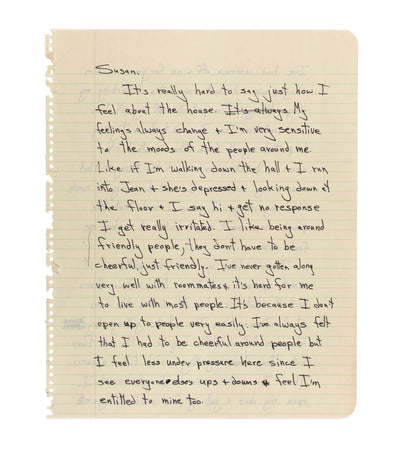 Susan,
It's really hard to say just how I
feel about the house. It's always My
feelings always change + I'm very sensitive
to the moods of the people around me.
Like if I'm walking down the hall + I run
into Jean + she's depressed + looking down at
the floor + I say hi + get no response
I get really irritated. I like being around
friendly people, they don't have to be
cheerful, just friendly. I've never gotten along
very well with roommates + it's hard for me
to live with most people. It's because I don't
open up to people very easily. I've always felt
that I had to be cheerful around people but
I feel less under pressure here since I
see everyone elses ups + downs + feel I'm
entitled to mine too.